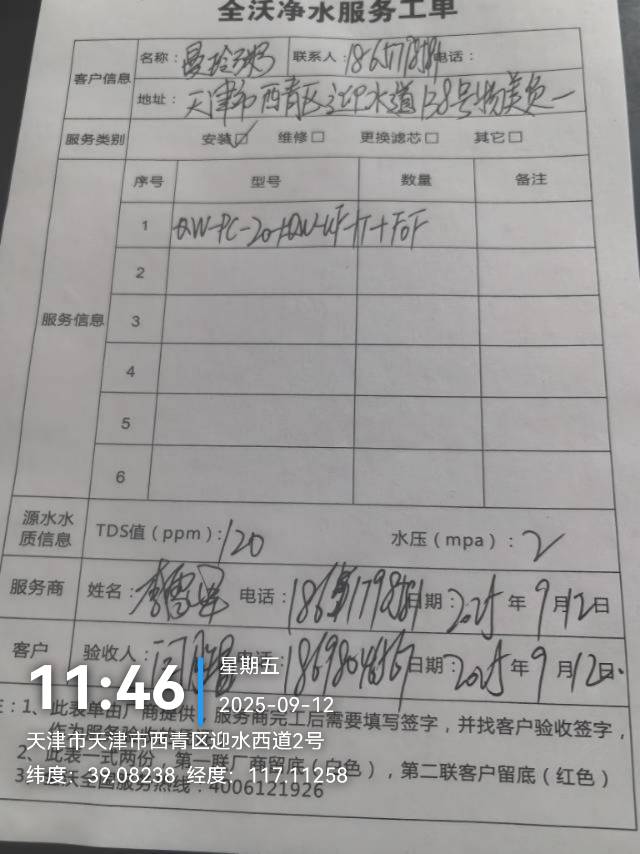 全沃净水服务工单
客户信息
名称：曼玲粥 联系人： 电话：
地址：天津市西青区迎水道138号物美负一
服务类别 安装☑ 维修□ 更换滤芯□ 其它□
服务信息
序号 型号 数量 备注
1 QW-PC-20+QW-UF-1T+FOF
2
3
4
5
6
源水水质信息 TDS值（ppm）：120 水压（mpa）：2
服务商 姓名：李雪 电话： 日期：2025年9月12日
客户 验收人： 电话：18698046567 日期：2025年9月12日
注：1、此表单由厂商提供，服务商完工后需要填写签字，并找客户验收签字，
2、此表一式两份，第一联厂商留底（白色），第二联客户留底（红色）
3、全沃全国服务热线：4006121926
11:46
星期五
2025-09-12
天津市天津市西青区迎水西道2号
纬度：39.08238 经度：117.11258